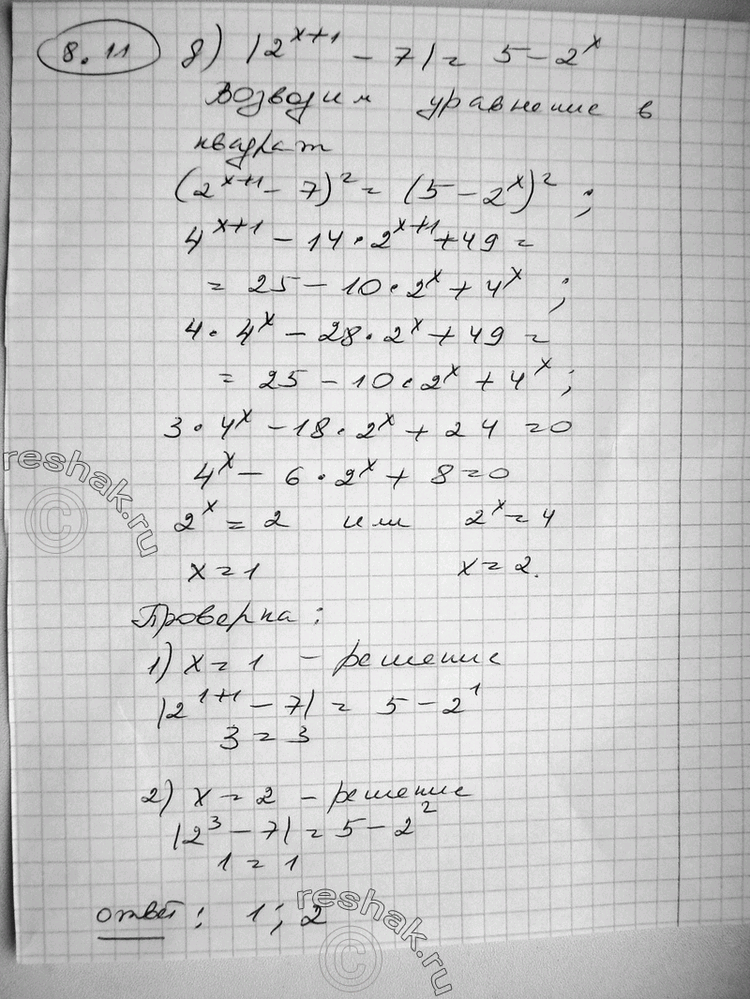 8.11 д) |2^{x+1} - 7| = 5 - 2^x
Возводим уравнение в
квадрат
(2^{x+1} - 7)^2 = (5 - 2^x)^2 ;
4^{x+1} - 14 · 2^{x+1} + 49 =
= 25 - 10 · 2^x + 4^x ;
4 · 4^x - 28 · 2^x + 49 =
= 25 - 10 · 2^x + 4^x ;
3 · 4^x - 18 · 2^x + 24 = 0
4^x - 6 · 2^x + 8 = 0
2^x = 2 или 2^x = 4
x = 1 x = 2.
Проверка:
1) x = 1 - решение
|2^{1+1} - 7| = 5 - 2^1
3 = 3
2) x = 2 - решение
|2^3 - 7| = 5 - 2^2
1 = 1
ответ: 1; 2
reshak.ru
©
reshak.ru
©